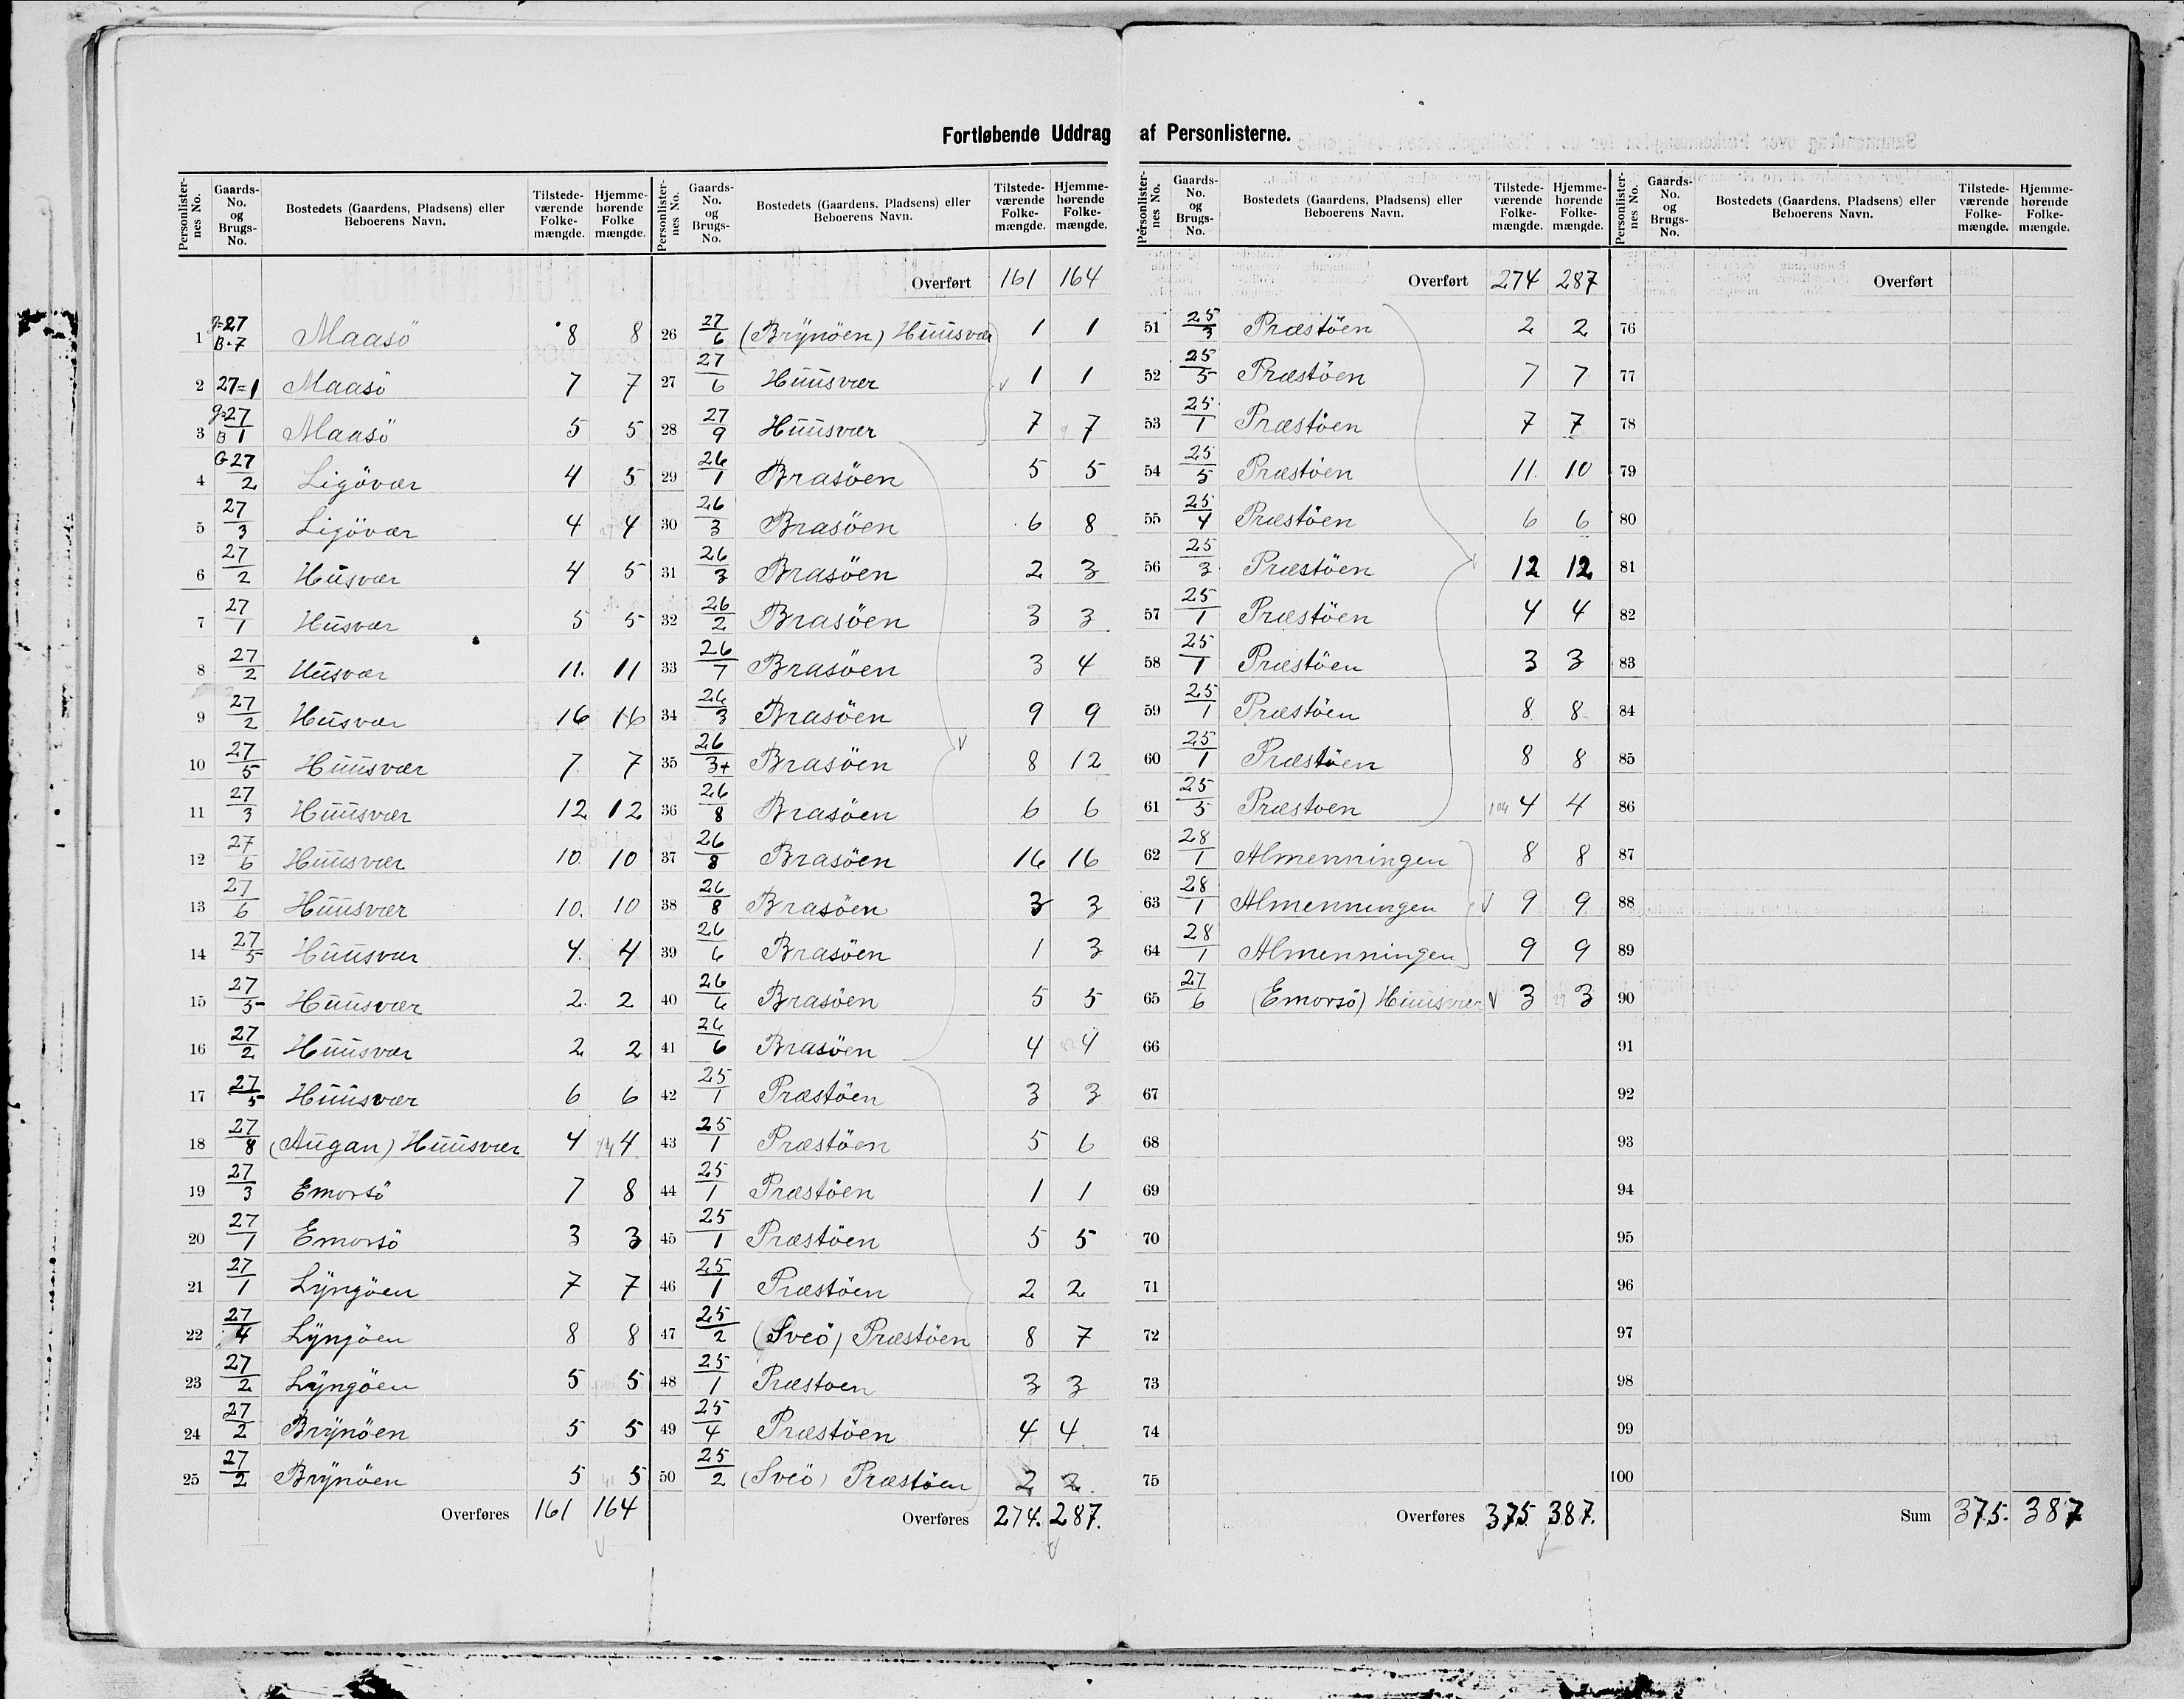 Fortløbende Uddrag af Personlisterne.
Personlister-nes No. Gaards-No. og Brugs-No. Bostedets (Gaardens, Pladsens) eller Beboerens Navn. Tilstede-værende Folke-mængde. Hjemme-hørende Folke mængde.
1 g=27 B.7 Maasö 8 8
2 27=1 Maasö 7 7
3 g=27 B 1 Maasö 5 5
4 G 27/2 Ligövær 4 5
5 27/3 Ligövær 4 4
6 27/2 Husvær 4 5
7 27/1 Husvær 5 5
8 27/2 Husvær 11. 11
9 27/2 Husvær 16 16
10 27/5 Huusvær 7. 7
11 27/3 Huusvær 12 12
12 27/6 Huusvær 10. 10
13 27/6 Huusvær 10. 10
14 27/5 Huusvær 4. 4
15 27/5 Huusvær 2. 2
16 27/2 Huusvær 2 2
17 27/5 Huusvær 6 6
18 27/8 (Augan) Huusvær 4 4
19 27/3 Emorsö 7 8
20 27/1 Emorsö 3 3
21 27/1 Lyngöen 7 7
22 27/4 Lyngöen 8 8
23 27/2 Lyngöen 5 5
24 27/2 Brynöen 5 5
25 27/2 Brynöen 5 5
Overføres 161 164
Personlister-nes No. Gaards-No. og Brugs-No. Bostedets (Gaardens, Pladsens) eller Beboerens Navn. Tilstede-værende Folke-mængde. Hjemme-hørende Folke-mængde.
Overført 161 164
26 27/6 (Brynöen) Huusvær 1 1
27 27/6 Huusvær 1 1
28 27/9 Huusvær 7 7
29 26/1 Brasöen 5 5
30 26/3 Brasöen 6 8
31 26/3 Brasöen 2 3
32 26/2 Brasöen 3 3
33 26/7 Brasöen 3 4
34 26/3 Brasöen 9 9
35 26/3+ Brasöen 8 12
36 26/8 Brasöen 6 6
37 26/8 Brasöen 16 16
38 26/8 Brasöen 3 3
39 26/6 Brasöen 1 3
40 26/6 Brasöen 5 5
41 26/6 Brasöen 4 4
42 25/1 Præstöen 3 3
43 25/1 Præstöen 5 6
44 25/1 Præstöen 1 1
45 25/1 Præstöen 5 5
46 25/1 Præstöen 2 2
47 25/2 (Sveö) Præstöen 8 7
48 25/1 Præstoen 3 3
49 25/4 Præstöen 4 4
50 25/2 (Sveö) Præstöen 2 2.
Overføres 274. 287.
Personlister-nes No. Gaards-No. og Brugs-No. Bostedets (Gaardens, Pladsens) eller Beboerens Navn. Tilstede-værende Folke-mængde. Hjemme-hørende Folke-mængde.
Overført 274 287
51 25/3 Præstöen 2 2
52 25/5 Præstöen 7 7
53 25/1 Præstöen 7 7
54 25/5 Præstöen 11. 10
55 25/4 Præstöen 6 6
56 25/3 Præstöen 12 12
57 25/1 Præstöen 4 4
58 25/1 Præstöen 3 3
59 25/1 Præstöen 8 8
60 25/1 Præstöen 8 8
61 25/5 Præstoen 4 4
62 28/1 Almenningen 8 8
63 28/1 Almenningen 9 9
64 28/1 Almenningen 9 9
65 27/6 (Emorsö) Huusvær 3 3
66
67
68
69
70
71
72
73
74
75
Overføres 375 387.
Personlister-nes No. Gaards-No. og Brugs-No. Bostedets (Gaardens, Pladsens) eller Beboerens Navn. Tilstede-værende Folke-mængde. Hjemme-hørende Folke-mængde.
Overført
76
77
78
79
80
81
82
83
84
85
86
87
88
89
90
91
92
93
94
95
96
97
98
99
100
Sum 375. 387